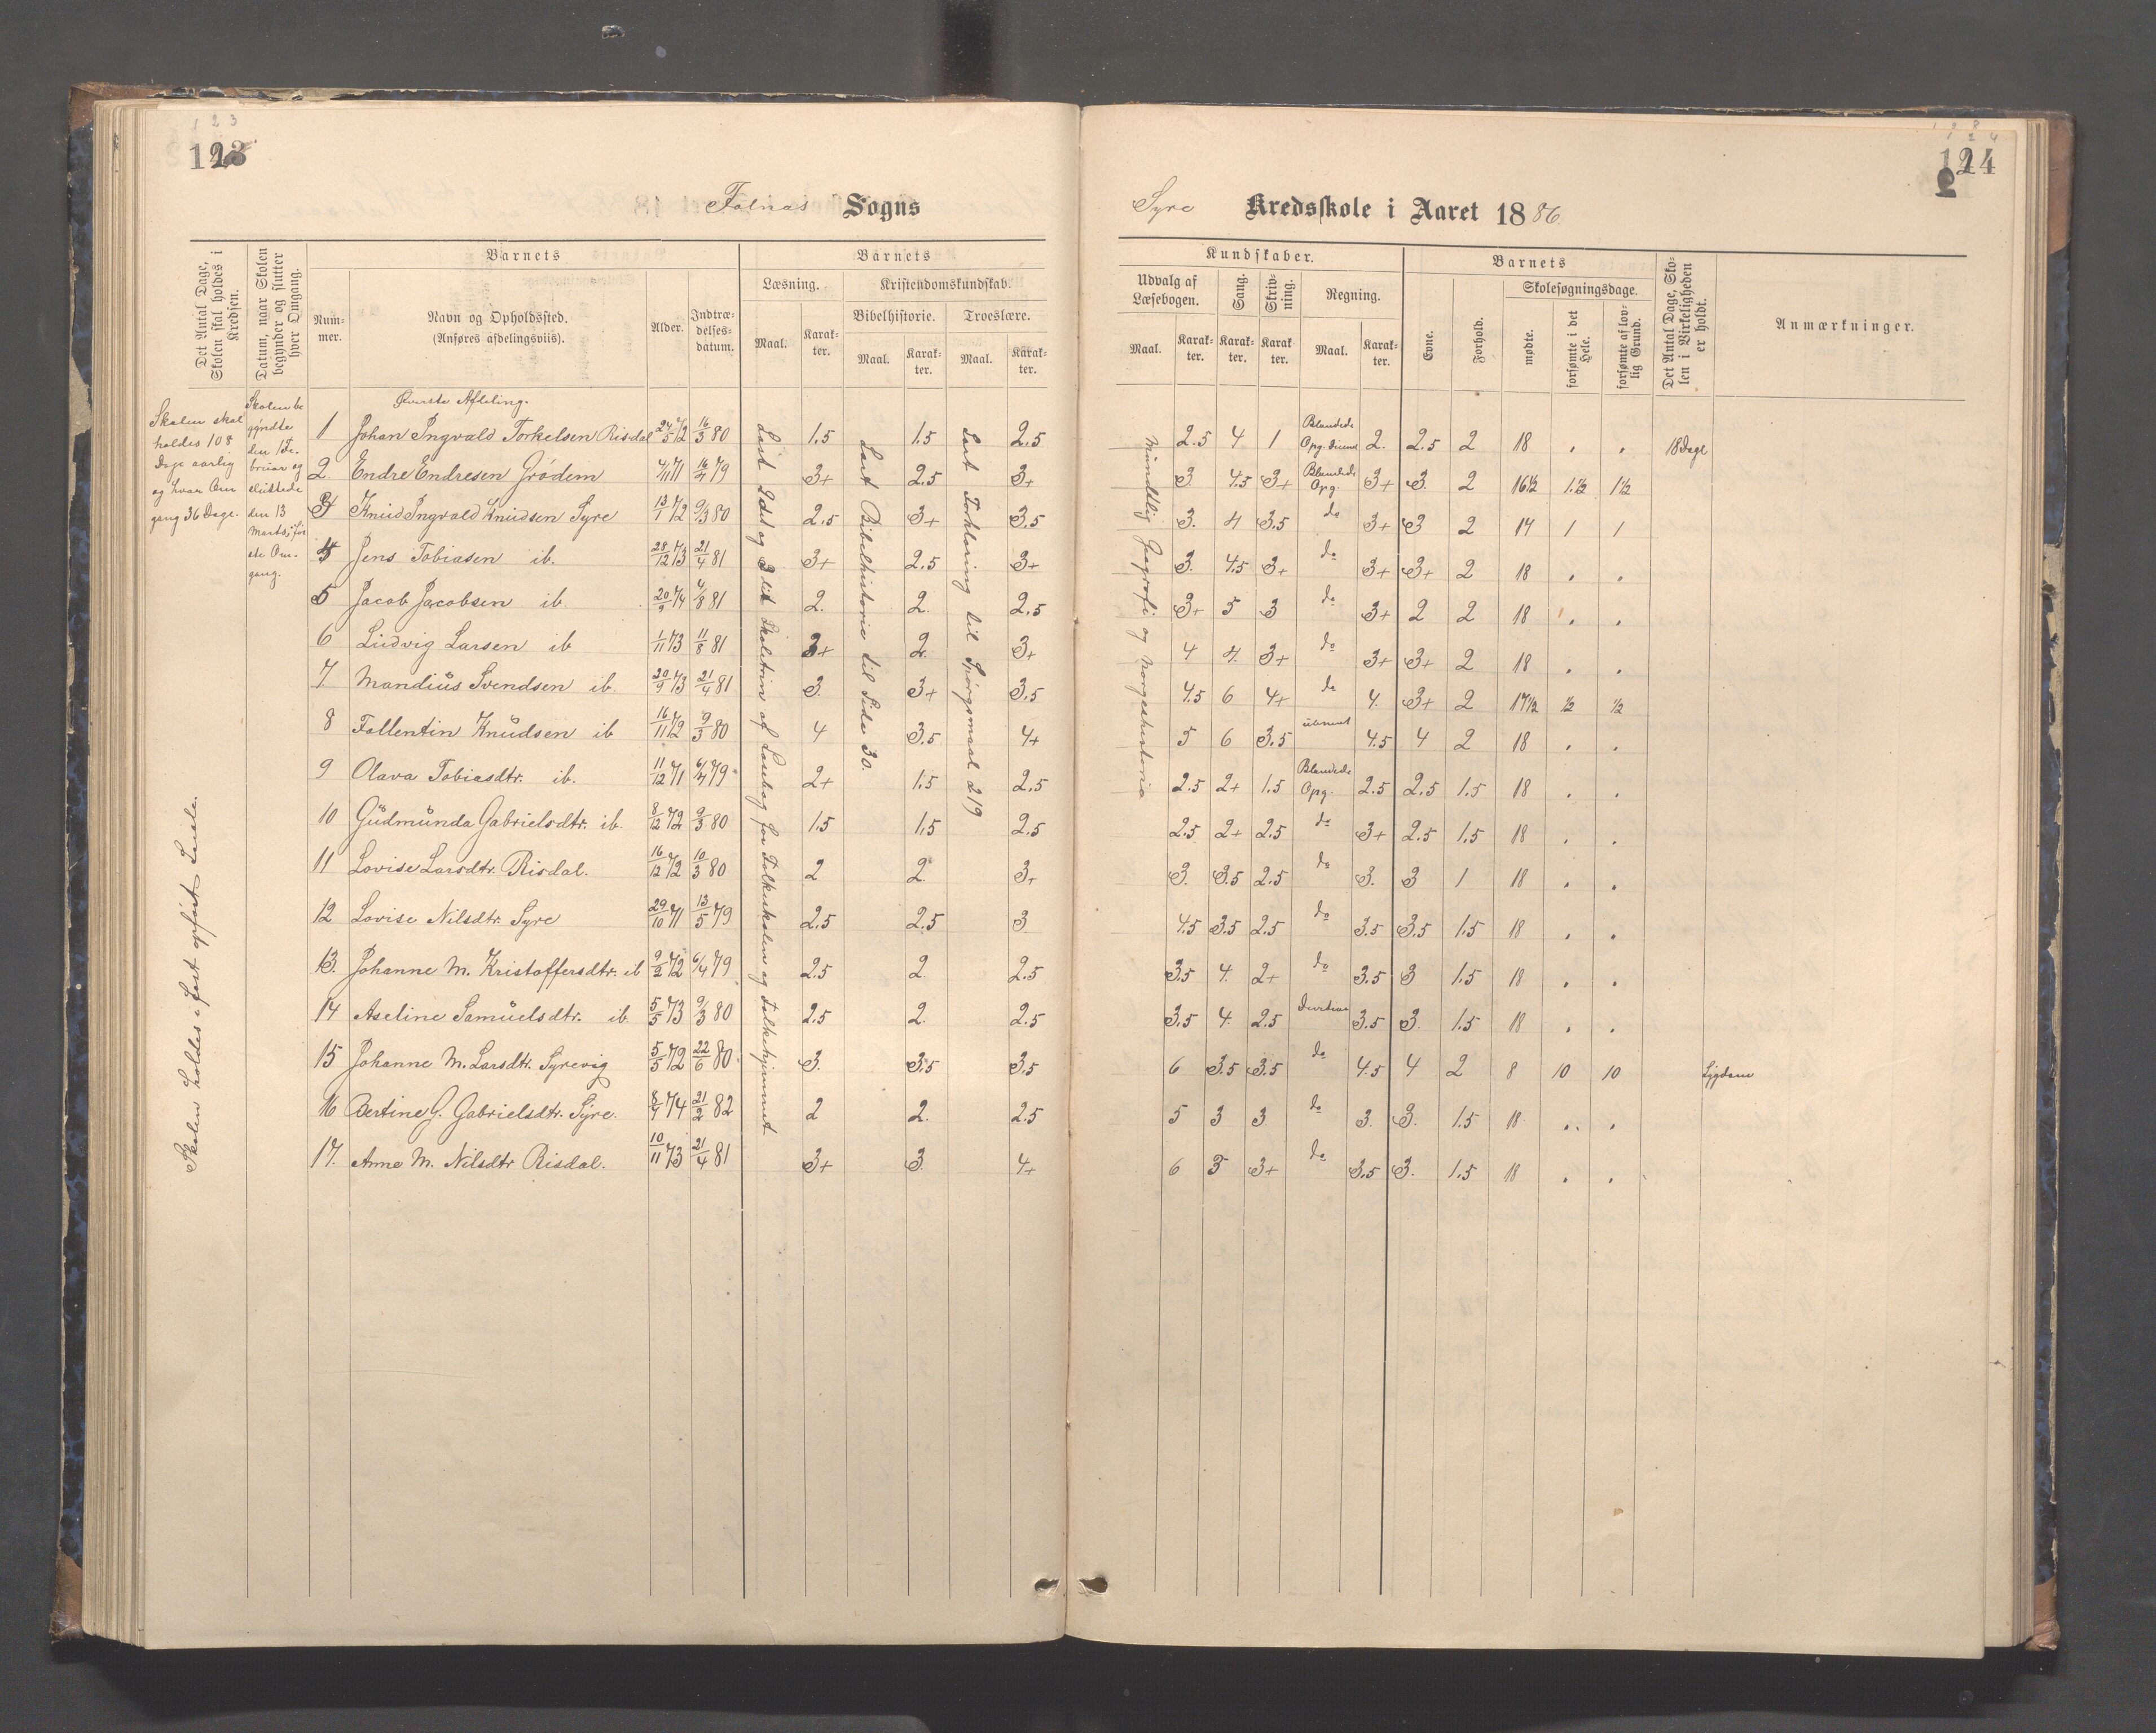 123
Falnæs Sogns
Det Antal Dage, Skolen skal holdes i Kredsen.
Datum, naar Skolen begynder og slutter hver Omgang.
Barnets
Barnets
Num-mer.
Navn og Opholdssted.
(Anføres afdelingsviis).
Alder.
Indtræ-delses-datum.
Læsning.
Kristendomskundskab.
Bibelhistorie. Troeslære.
Maal. Karak-ter. Maal. Karak-ter. Maal. Karak-ter.
Skolen skal holdes 108 Dage aarlig og hver Om gang 36 Dage.
Skolen be gyndte den 1 Fe-bruar og sluttede den 13 Marts, før ste Om-gang.
Skolen holdes i fast opført Lokale.
Øverste Afdeling.
1 Johan Ingvald Torkelsen Risdal 24/5 72 16/3 80 1.5 1.5 2.5
2 Endre Endresen Grödem 4/11 71 16/4 79 3+ 2.5 3+
3 Knud Ingvald Knudsen Syre 13/7 72 9/3 80 2.5 3+ 3.5
4 Jens Tobiasen ib. 28/12 73 21/4 81 3+ 2.5 3+
5 Jacob Jacobsen ib. 20/9 74 4/8 81 2. 2. 2.5
6 Ludvig Larsen ib 1/11 73 11/8 81 3+ 2. 3+
7. Mandius Svendsen ib. 20/9 73 21/4 81 3. 3+ 3.5
8 Fallentin Knudsen ib 16/11 72 9/3 80 4 3.5 4+
9 Olava Tobiasdtr. ib. 11/12 71 6/4 79 2+ 1.5 2.5
10 Gudmunda Gabrielsdtr. ib. 8/12 72 9/3 80 1.5 1.5 2.5
11 Lovise Larsdtr. Risdal. 16/12 72 10/3 80 2 2. 3+
12 Lovise Nilsdtr. Syre 29/10 71 13/5 79 2.5 2.5 3
13. Johanne M. Kristoffersdtr. ib 9/2 72 6/4 79 2.5 2. 2.5
14 Aseline Samuelsdtr. ib 5/5 73 9/3 80 2.5 2. 2.5
15 Johanne M. Larsdtr. Syrevig 5/5 72 22/6 80 3. 3.5 3.5
16 Bertine G. Gabrielsdtr. Syre. 8/7 74 21/2 82 2 2. 2.5
17. Anne M. Nilsdtr Risdal. 10/11 73 21/4 81 3+ 3. 4+
Læst 1det og 3die Skoletrin af Læsebog for Folkeskolen og Folkehjemmet
Læst Bibelhistorie til Side 30.
Læst Forklaring til Spörgsmaal 219
124
Syre Kredsskole i Aaret 1886.
Kundskaber.
Barnets
Udvalg af Læsebogen.
Sang.
Skriv-ning.
Regning.
Evne.
Forhold.
Skolesøgningsdage.
Det Antal Dage, Sko-len i Virkeligheden er holdt.
Anmærkninger.
Maal. Karak-ter. Karak-ter. Karak ter. Maal. Karak-ter.
mødte. forsømte i det Hele. forsømte af lov-lig Grund.
Mundtlig Geografi og Norgeshistorie
2.5 4 1 Blandede Opg. 2. 2.5 2 18 . . 18 Dage
3 4.5 3+ Blandede Opg. 3+ 3. 2 16½ 1.½ 1½
3. 4 3.5 do 3+ 3 2 17 1 1
3. 4.5 3+ do 3+ 3+ 2 18 . .
3+ 5 3 do 3+ 2 2 18 . .
4 4. 3+ do 3+ 3+ 2 18 . .
4.5 6 4+ do 4. 3+ 2 17½ ½ ½
5 6 3.5 4.5 4 2 18 . .
2.5 2+ 1.5 Blandede Opg. 2.5 2.5 1.5 18 . .
2.5 2+ 2.5 do 3+ 2.5 1.5 18 . .
3. 3.5 2.5 do 3. 3 1 18 . .
4.5 3.5 2.5 do 3.5 3.5 1.5 18 . .
3.5 4. 2+ do 3.5 3 1.5 18 . .
3.5 4. 2.5 3.5 3. 1.5 18 . .
6 3.5 3.5 do 4.5 4 2 8 10 10 Sygdom
5 3 3 do 3. 3. 1.5 18 . .
6 5 3+ do 3.5 3. 1.5 18 . .